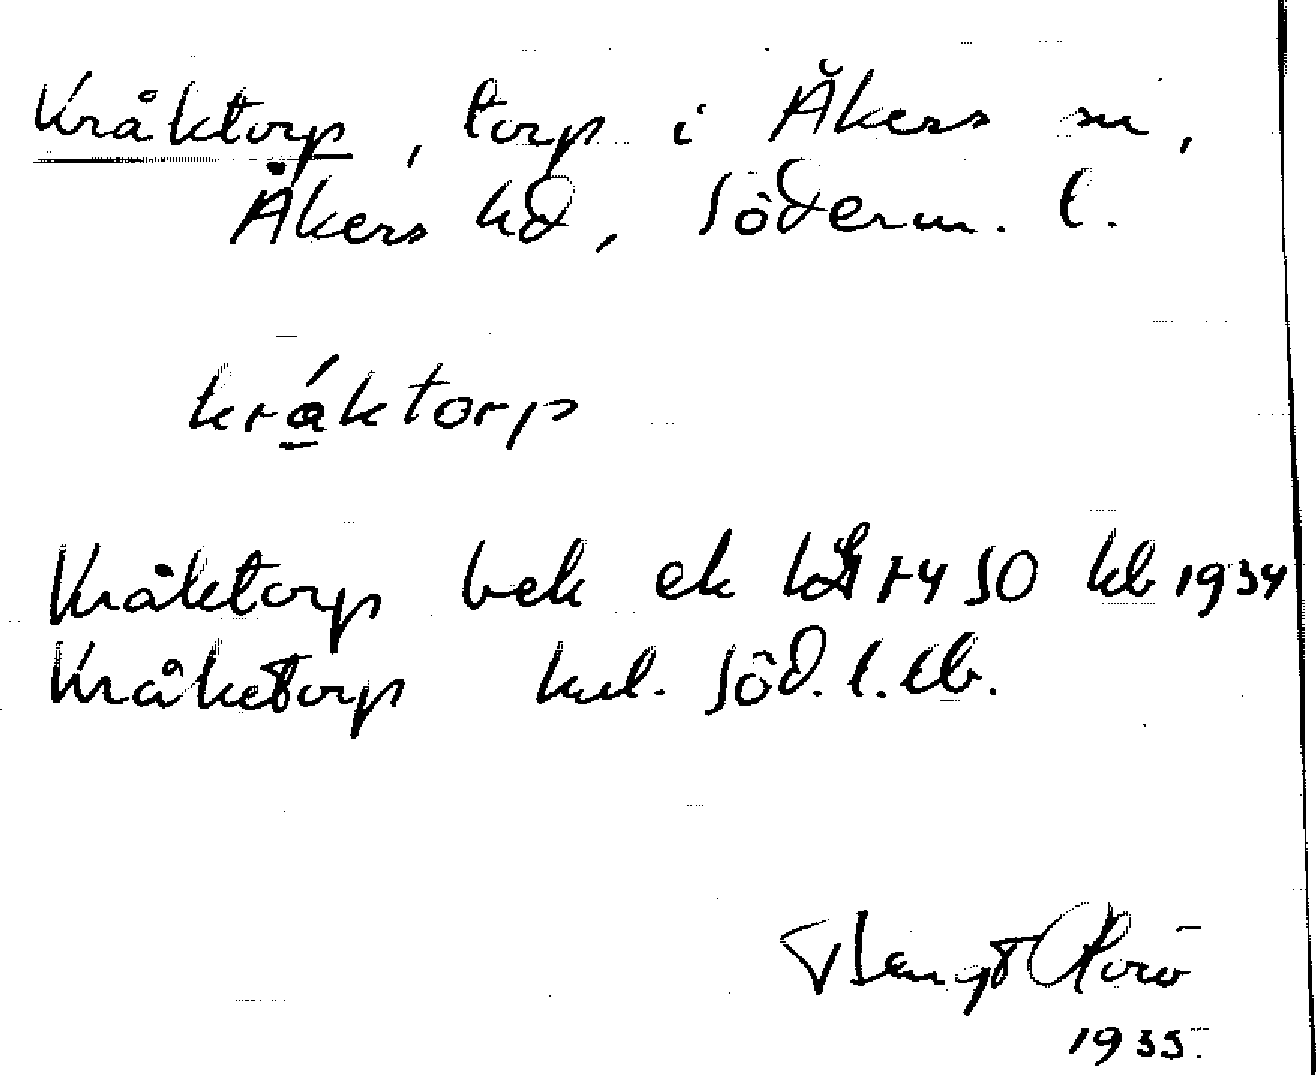 Kråktorp, torp i Åkers sn,
Åkers hd, Söderm. l.
kråktorp
Kråktorp bek ek 1450 kb 1934
Kråketorp kul. Söd. l. lb.
Bengt
1935.